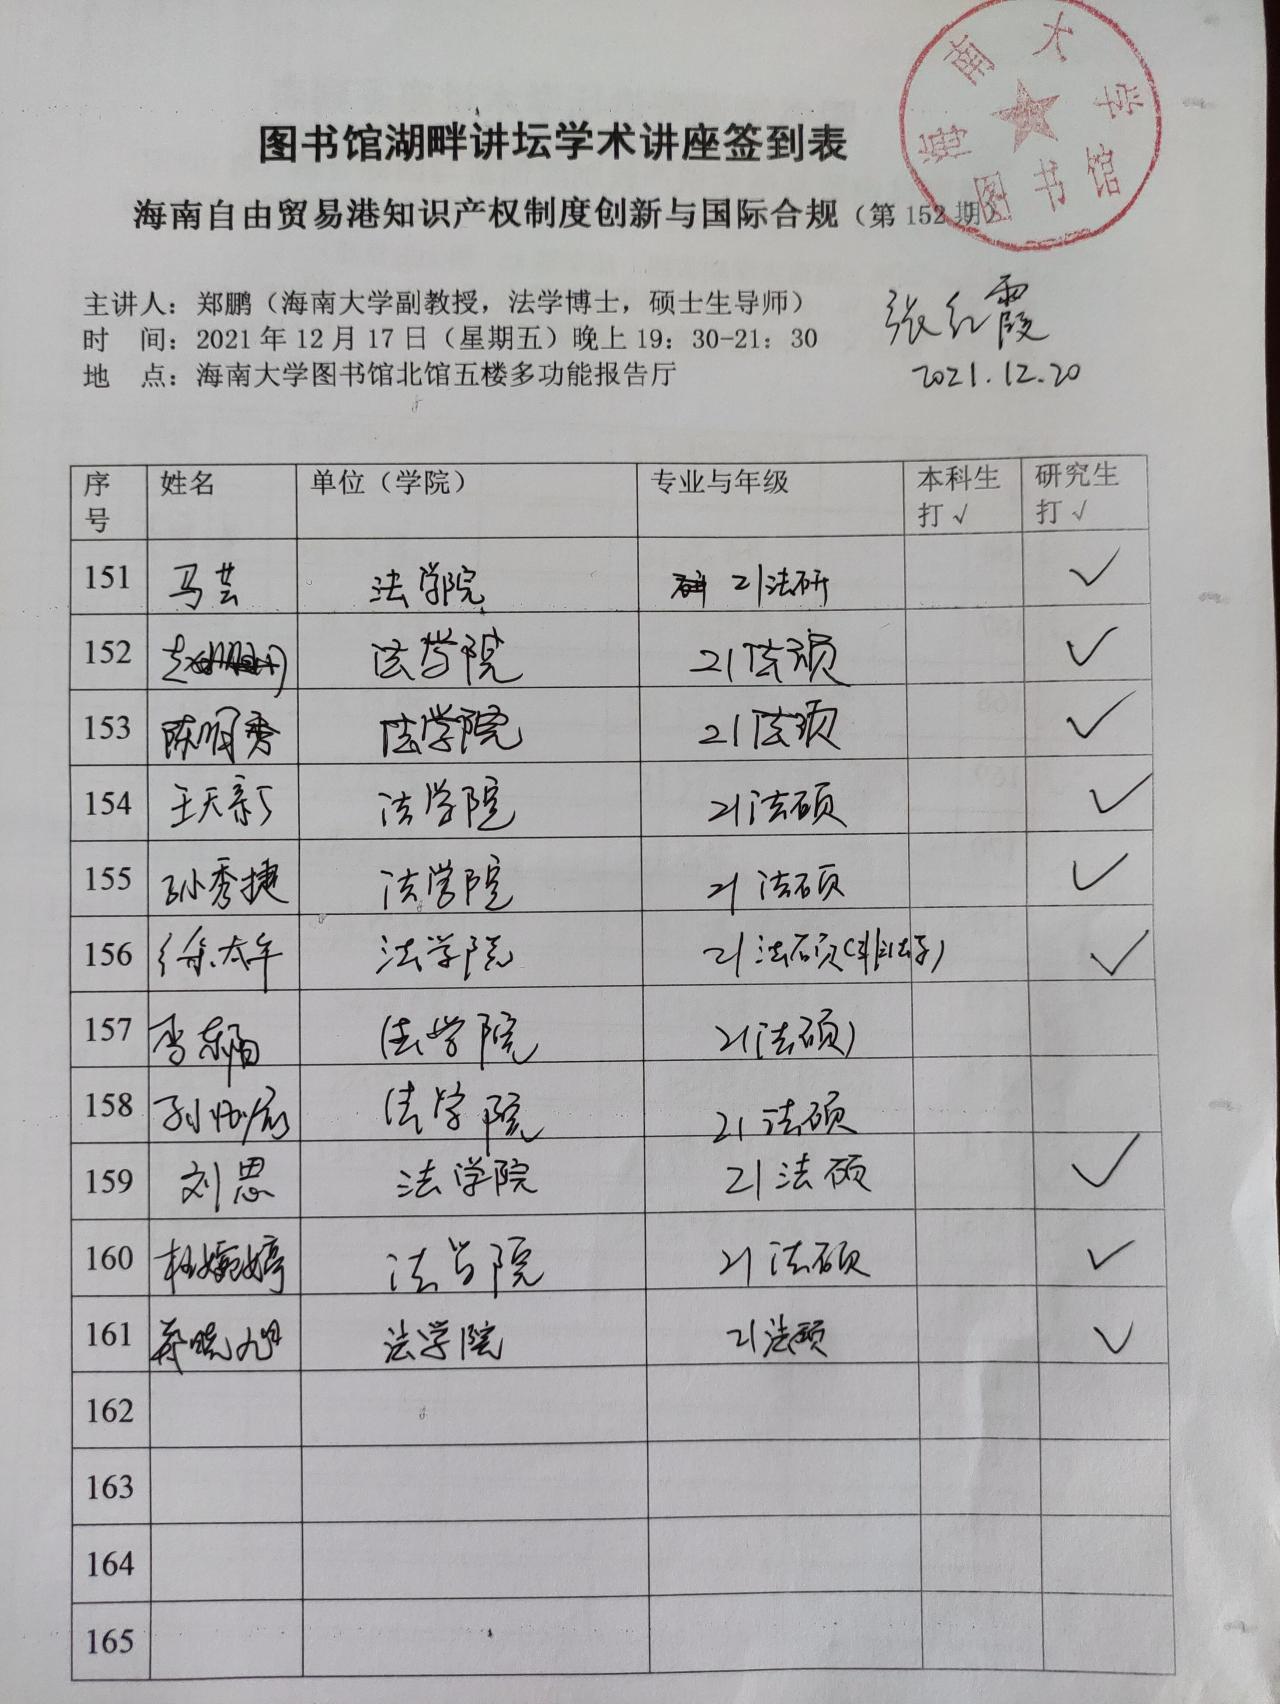 海南大学
图书馆
图书馆湖畔讲坛学术讲座签到表
海南自由贸易港知识产权制度创新与国际合规（第 152 期）
主讲人：郑鹏（海南大学副教授，法学博士，硕士生导师）
张红霞
时 间：2021 年 12 月 17 日（星期五）晚上 19：30-21：30
地 点：海南大学图书馆北馆五楼多功能报告厅
2021.12.20
序号 姓名 单位（学院） 专业与年级 本科生打√ 研究生打√
151 马芸 法学院 21法研 ✓
152 法学院 21法硕 ✓
153 陈明秀 法学院 21法硕 ✓
154 王天新 法学院 21法硕 ✓
155 孙秀捷 法学院 21法硕 ✓
156 法学院 21法硕(非法学) ✓
157 李东阳 法学院 21法硕
158 法学院 21法硕
159 刘思 法学院 21法硕 ✓
160 杜婉婷 法学院 21法硕 ✓
161 法学院 21法硕 ✓
162
163
164
165